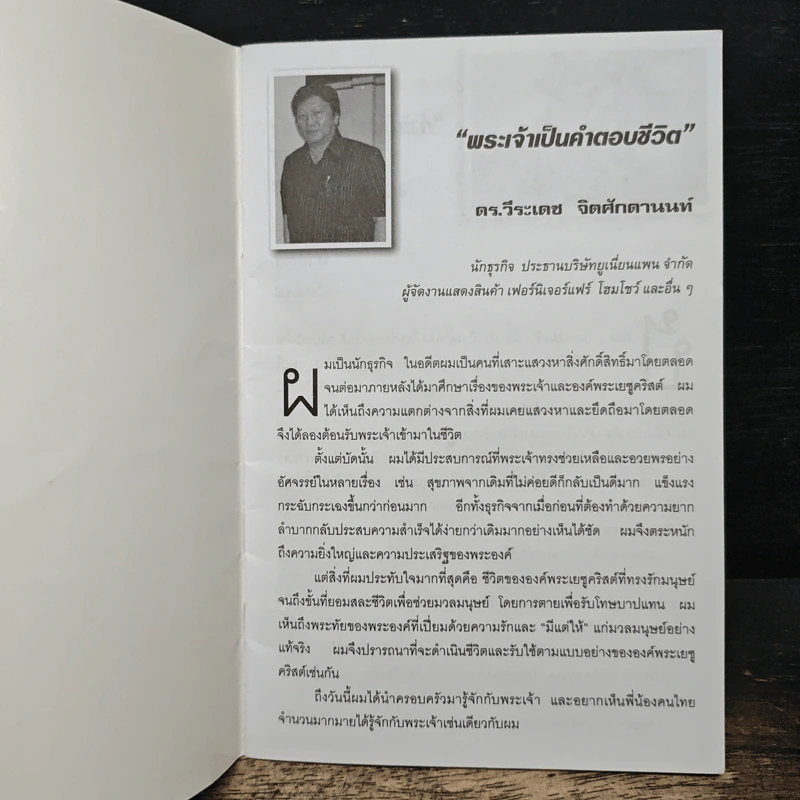 “พระเจ้าเป็นคำตอบชีวิต”
ดร.วีระเดช จิตศักดานนท์
นักธุรกิจ ประธานบริษัทยูเนี่ยนแพน จำกัด
ผู้จัดงานแสดงสินค้า เฟอร์นิเจอร์แฟร์ โฮมโชว์ และอื่น ๆ
ผมเป็นนักธุรกิจ ในอดีตผมเป็นคนที่เสาะแสวงหาสิ่งศักดิ์สิทธิ์มาโดยตลอด
จนต่อมาภายหลังได้มาศึกษาเรื่องของพระเจ้าและองค์พระเยซูคริสต์ ผม
ได้เห็นถึงความแตกต่างจากสิ่งที่ผมเคยแสวงหาและยึดถือมาโดยตลอด
จึงได้ลองต้อนรับพระเจ้าเข้ามาในชีวิต
ตั้งแต่บัดนั้น ผมได้มีประสบการณ์ที่พระเจ้าทรงช่วยเหลือและอวยพรอย่าง
อัศจรรย์ในหลายเรื่อง เช่น สุขภาพจากเดิมที่ไม่ค่อยดีก็กลับเป็นดีมาก แข็งแรง
กระฉับกระเฉงขึ้นกว่าก่อนมาก อีกทั้งธุรกิจจากเมื่อก่อนที่ต้องทำด้วยความยาก
ลำบากกลับประสบความสำเร็จได้ง่ายกว่าเดิมมากอย่างเห็นได้ชัด ผมจึงตระหนัก
ถึงความยิ่งใหญ่และความประเสริฐของพระองค์
แต่สิ่งที่ผมประทับใจมากที่สุดคือ ชีวิตขององค์พระเยซูคริสต์ที่ทรงรักมนุษย์
จนถึงขั้นที่ยอมสละชีวิตเพื่อช่วยมวลมนุษย์ โดยการตายเพื่อรับโทษบาปแทน ผม
เห็นถึงพระทัยของพระองค์ที่เปี่ยมด้วยความรักและ “มีแต่ให้” แก่มวลมนุษย์อย่าง
แท้จริง ผมจึงปรารถนาที่จะดำเนินชีวิตและรับใช้ตามแบบอย่างขององค์พระเยซู
คริสต์เช่นกัน
ถึงวันนี้ผมได้นำครอบครัวมารู้จักกับพระเจ้า และอยากเห็นพี่น้องคนไทย
จำนวนมากมายได้รู้จักกับพระเจ้าเช่นเดียวกับผม